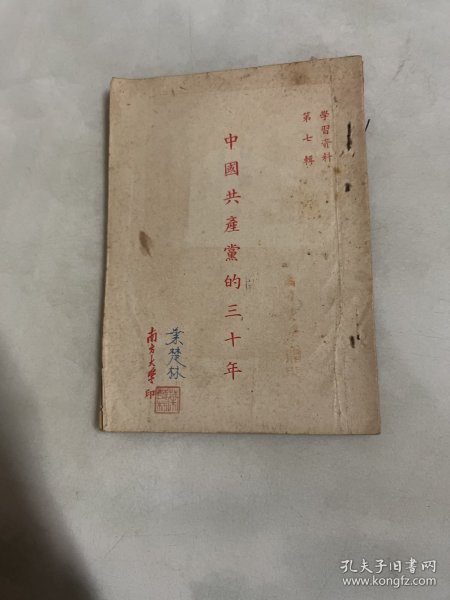 學習資料
第七輯
中國共產黨的三十年
葉楚林
南方大學印
孔夫子旧书网
www.kongfz.com